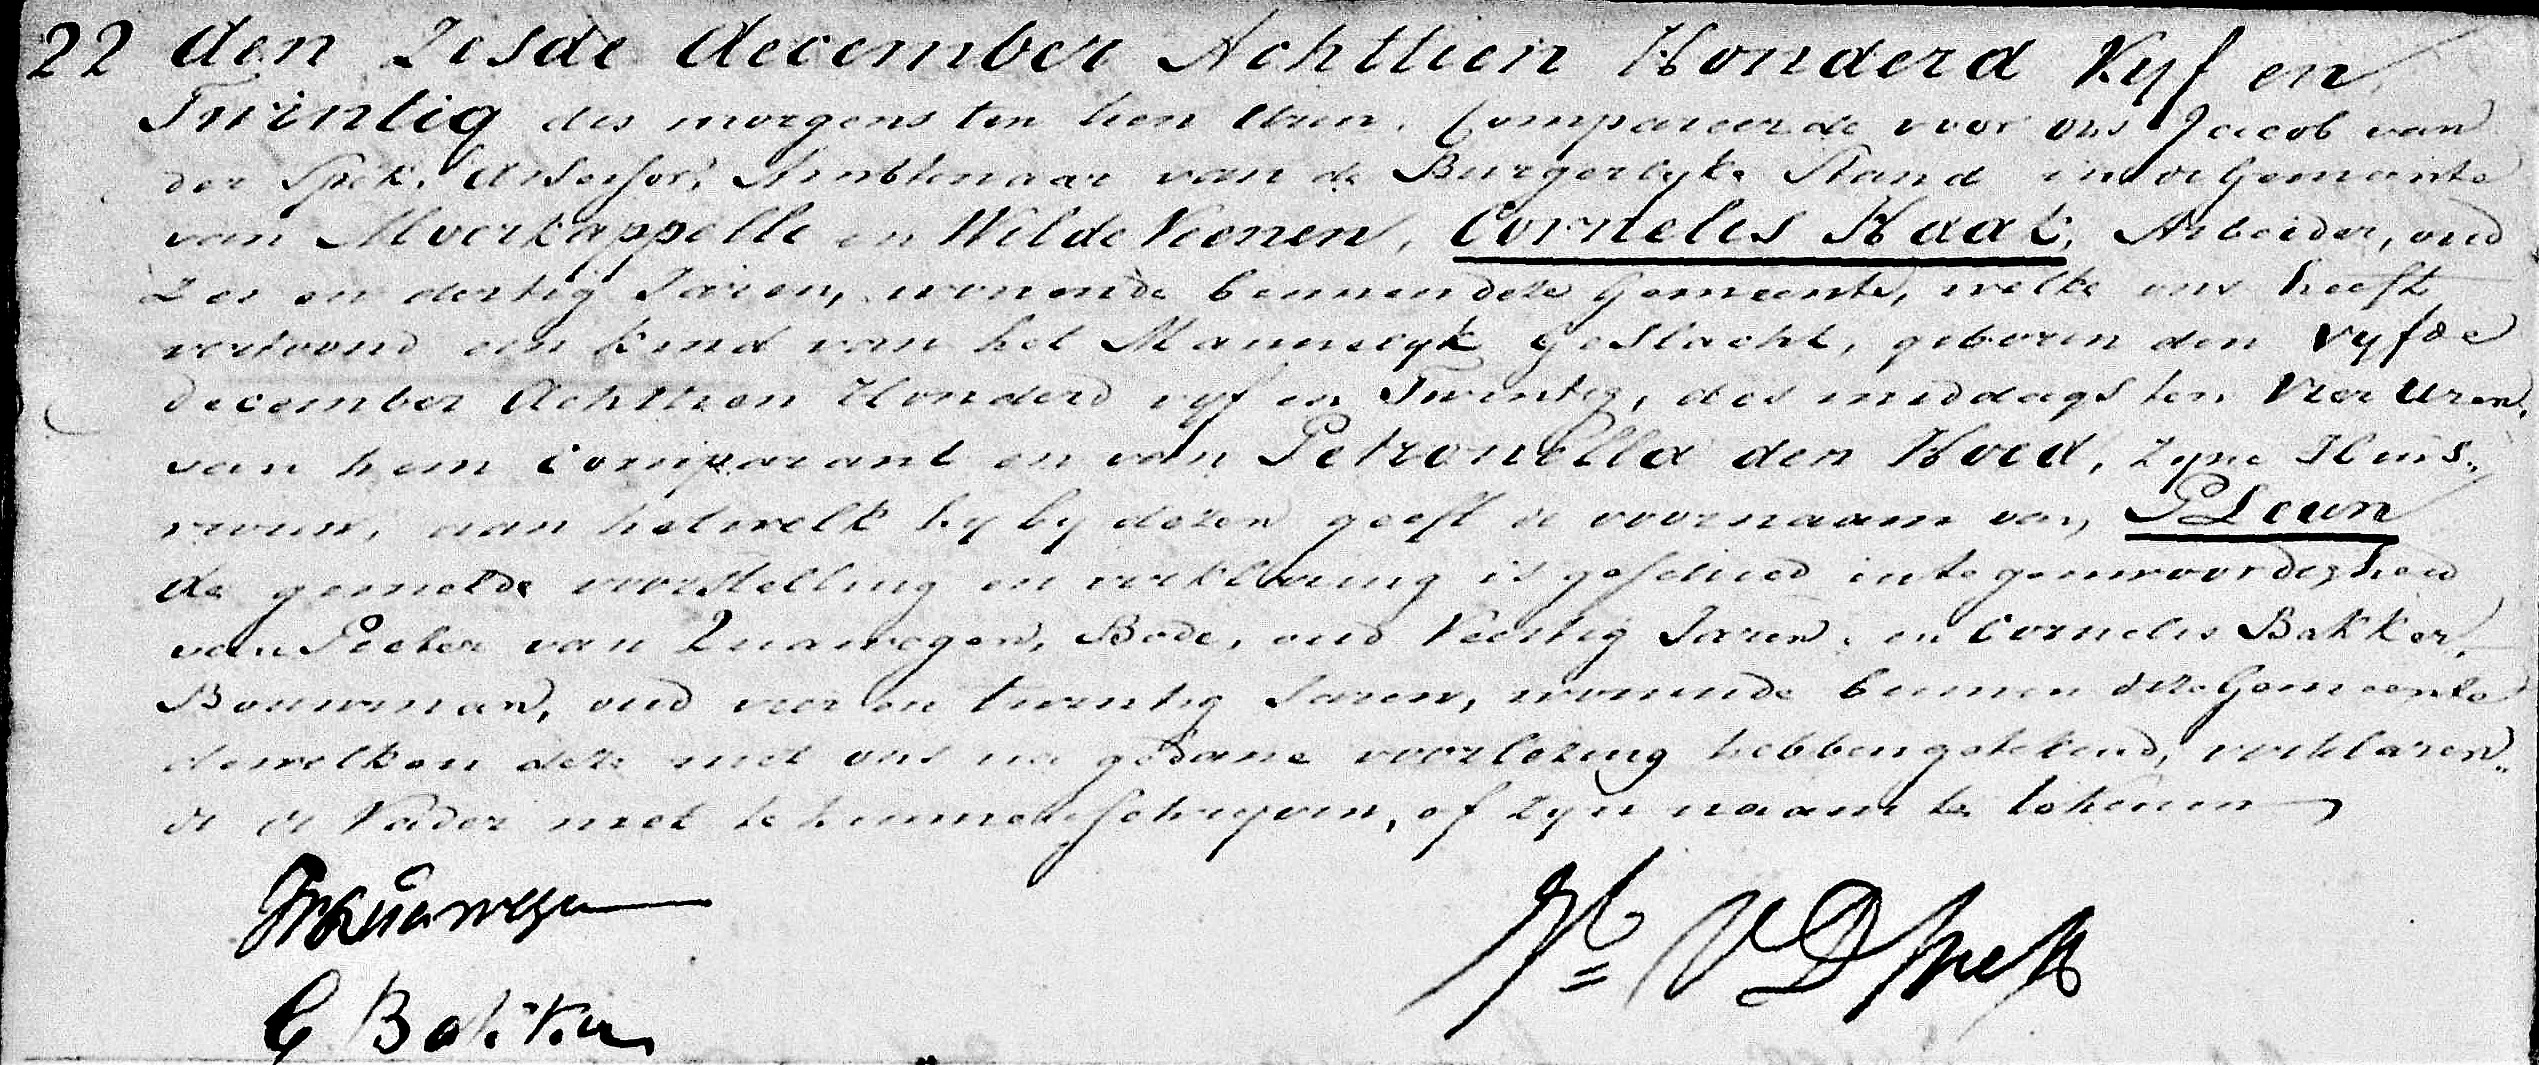 22 den Zesde december Achttien Honderd Vyf en
Twintig des morgens ten tien Uren. Compareerde voor ons Jacob van
der Spek, Assessor, Ambtenaar van de Burgerlyke Stand in de Gemeente
van Moerkappelle en Wilde Veenen, Cornelis Kaat, Arbeider, oud
Zes en dertig Jaren, wonende binnen deze Gemeente, welke ons heeft
vertoond een kind van het Mannelyk Geslacht, geboren den vyfde
december Achttien Honderd vyf en Twintig, des middags ten Vier Uren,
van hem Comparant en van Petronella den Hoed, Zyne Huis„
vrouw, aan hetwelk hy by dezen geeft de voornaam van PLeun
de gemelde voorstelling en verklaring is geschied in tegenwoordigheid
van Pieter van Zuawegen, Bode, oud Veertig Jaren, en Cornelis Bakker,
Bouwman, oud vier en twintig Jaren, wonende binnen deze Gemeente
dewelken deze met ons na gedane voorlezing hebben getekend, verklaren„
de de Vader niet te kunnen schryven, of zyn naam te tekenen
PvZuawegen
C Bakker
Jb= V D Spek